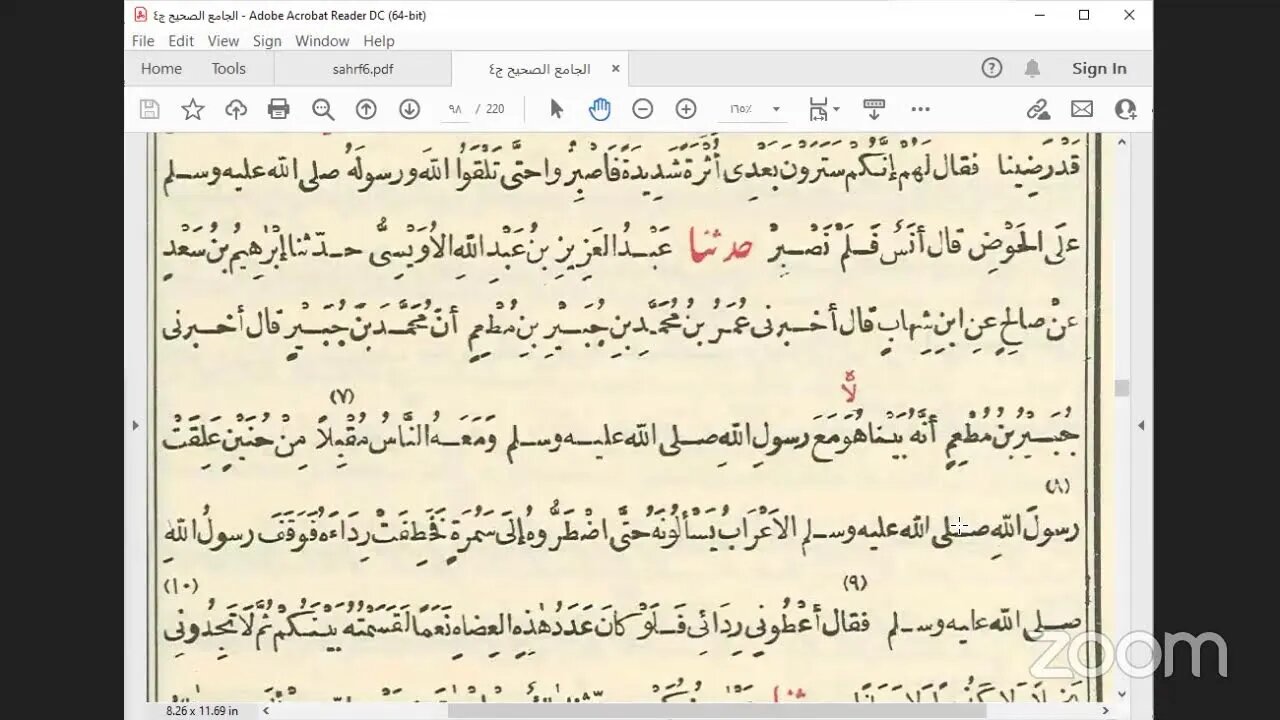 الجامع الصحيح ج٤ - Adobe Acrobat Reader DC (64-bit)
File Edit View Sign Window Help
Home Tools sahrf6.pdf الجامع الصحيح ج٤ × Sign In
٩٨ / 220 ١٦٥٪
قَدْ رَضِينَا فقال لَهُمْ إنَّكُمْ سَتَرَوْنَ بَعْدِى أُثْرَةً شَدِيدَةً فَاصْبِرُوا حتَّى تَلْقَوُا اللّٰهَ ورسولَهُ صلى الله عليه وسلم
عَلَى الحَوْضِ قال أنَسٌ فَلَمْ نَصْبِرْ حدثنا عَبْدُ العَزِيزِ بنُ عَبْدِ اللّٰهِ الأُوَيْسِىُّ حدّثنا إبْرٰهِيمُ بنُ سَعْدٍ
عنْ صالِحٍ عنِ ابنِ شِهابٍ قال أخبرنى عُمَرُ بنُ مُحَمَّدِ بنِ جُبَيْرِ بنِ مُطْعِمٍ أنَّ مُحَمَّدَ بنَ جُبَيْرٍ قال أخبرنى
لاه
(٧)
جُبَيْرُ بنُ مُطْعِمٍ أنَّهُ بَيْنا هُوَ مَعَ رسولِ اللّٰهِ صلى الله عليه وسلم وَمَعَهُ النَّاسُ مُقْبِلاً مِنْ حُنَيْنٍ عَلِقَتْ
(٨)
رسولَ اللّٰهِ صلى الله عليه وسلم الأعْرَابُ يَسْألُونَهُ حتَّى اضْطَرُّوهُ إلَى سَمُرَةٍ فَخَطِفَتْ رِدَاءَهُ فَوَقَفَ رسولُ اللّٰهِ
(٩) (١٠)
صلى الله عليه وسلم فقال أَعْطُونِى رِدَائِى فَلَوْ كانَ عَدَدُ هٰذِهِ العِضَاهِ نَعَمًا لَقَسَمْتُهُ بَيْنَكُمْ ثُمَّ لَا تَجِدُونِى
zoom
8.26 x 11.69 in